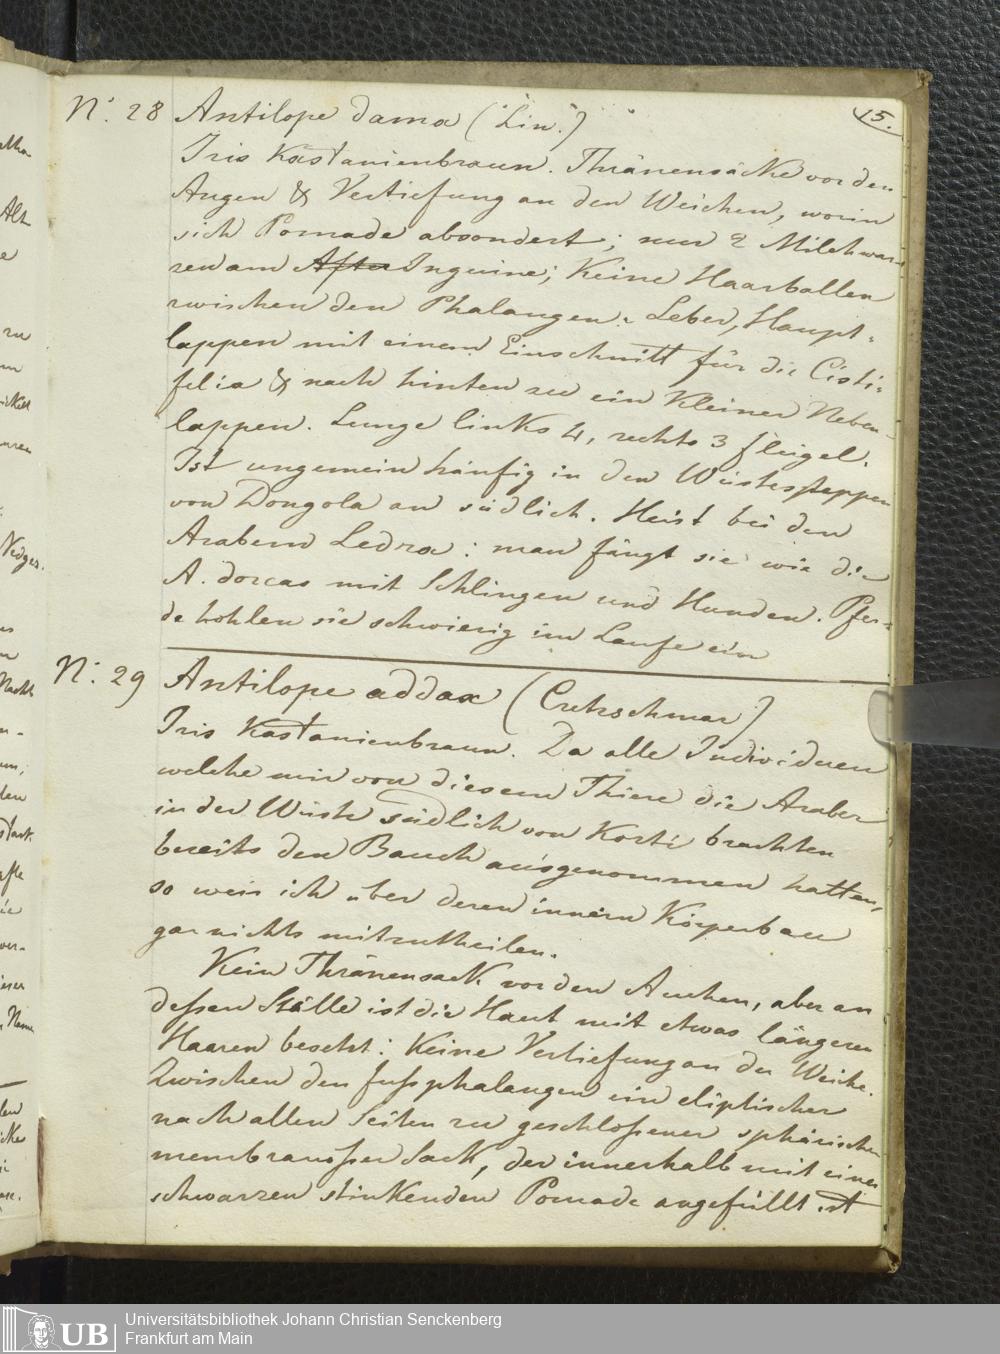 15.
N: 28 Antilope dama (Lin.)
Iris Kastanienbraun. Thränensäcke vor den
Augen & Vertiefung an den Weichen, worin
sich Pomade absondert; nur 2 Milchwar-
zen am After Inguine; Keine Haarballen
zwischen den Phalangen. Leber, Haupt-
lappen mit einem Einschnitt für die Cisti-
felia & nach hinten zu ein Kleiner Neben-
lappen. Lunge links 4, rechts 3 fleigel.
Ist ungemein häufig in den Wüstesteppen
von Dongola an südlich. Heist bei den
Arabern Ledra: man fängt sie wie die
A. dorcas mit Schlingen und Hunden. Pfer-
de hohlen sie schwierig im Laufe ein
N: 29 Antilope addax (Cretzschmar)
Iris Kastanienbraun. Da alle Individuen
welche mir von diesem Thiere die Araber
in der Wüste südlich von Korti brachten
bereits den Bauch ausgenommen hatten,
so weis ich über deren innern Körperbau
gar nichts mitzutheilen.
Kein Thränensack vor den Auchen, aber an
dessen Ställe ist die Haut mit etwas längeren
Haaren besetzt: Keine Vertiefung an der Weiche.
Zwischen den fussphalangen ein eliptischer
nach allen Seiten zu geschlossener sphärisch
membranosser Sack, der innerhalb mit einer
schwarzen stinkenden Pomade angefüllt ist
UB
Universitätsbibliothek Johann Christian Senckenberg
Frankfurt am Main